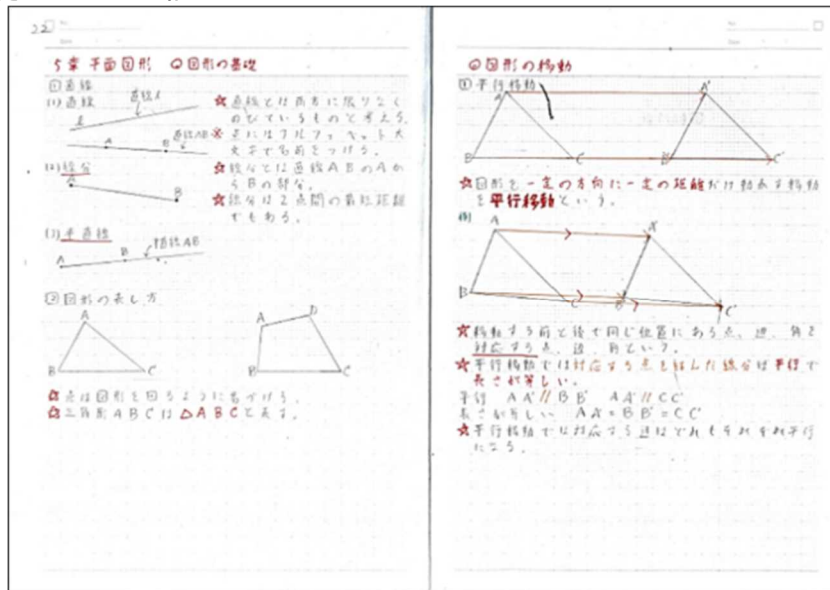 22
5章 平面図形 ○図形の基礎
①直線
(1) 直線
直線ℓ
ℓ
☆直線とは両方に限りなく
のびているものと考える。
直線AB
A
B
※点にはアルファベット大
文字で名前をつける。
(2) 線分
A
B
☆線分とは直線ABのAか
らBの部分。
☆線分は2点間の最短距離
でもある。
(3) 半直線
半直線AB
A
B
②図形の表し方
A
B
C
A
D
B
C
☆点は図形を回るように名づける。
☆三角形ABCは△ABCと表す。
○図形の移動
①平行移動
A
A'
B
C
B'
C'
☆図形を一定の方向に一定の距離だけ動かす移動
を平行移動という。
例
A
A'
B
C
B'
C'
☆移動する前と後で同じ位置にある点、辺、角を
対応する点、辺、角という。
☆平行移動では対応する点を結んだ線分は平行で
長さが等しい。
平行 AA'//BB' AA'//CC'
長さが等しい AA'=BB'=CC'
☆平行移動では対応する辺はどれもそれぞれ平行
になる。